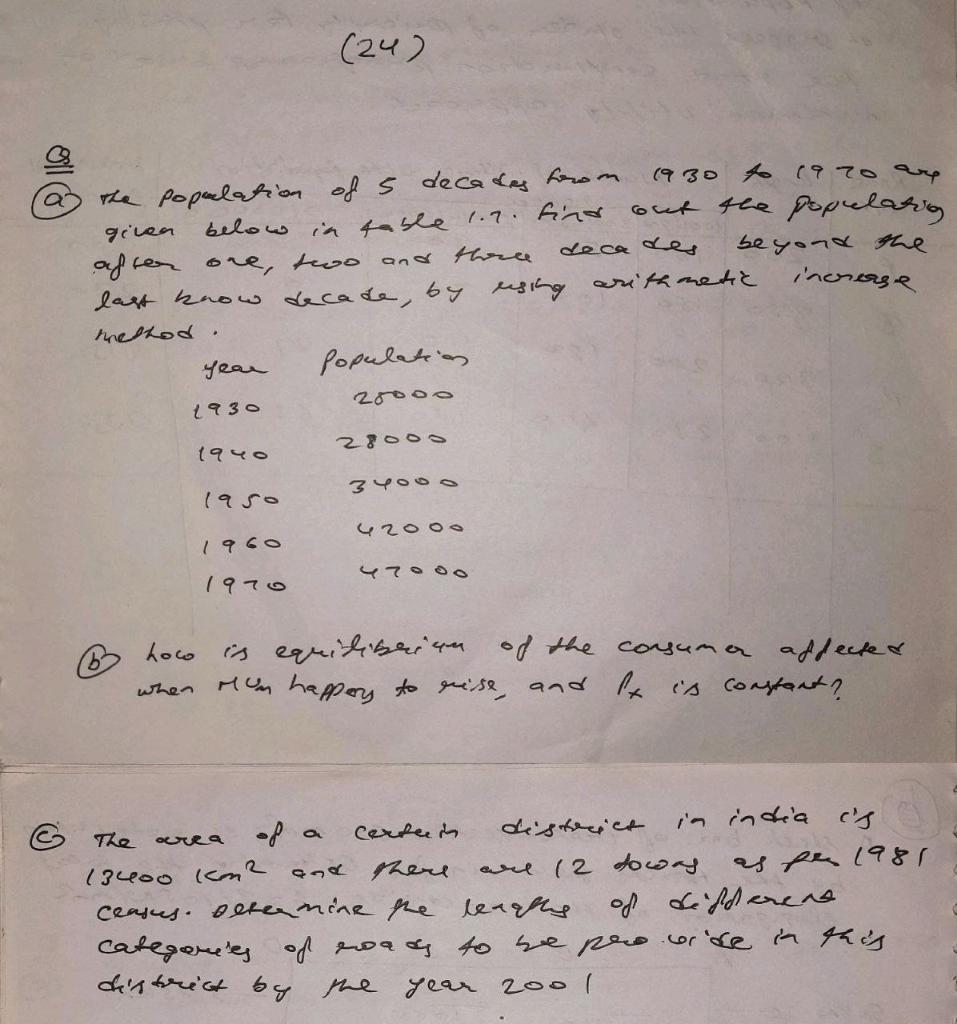 (24)
Q
(a) The population of 5 decades from 1930 to 1970 are
given below in table 1.7. find out the population
after one, two and three decades beyond the
last know decade, by using arithmetic increase
method.
year population
1930 25000
1940 28000
1950 34000
1960 42000
1970 47000
(b) how is equilibrium of the consumer affected
when MUm happens to rise, and Px is constant?
(c) The area of a certain district in india is
13400 km² and there are 12 towns as per 1981
census. Determine the lengths of different
categories of roads to be provide in this
district by the year 2001